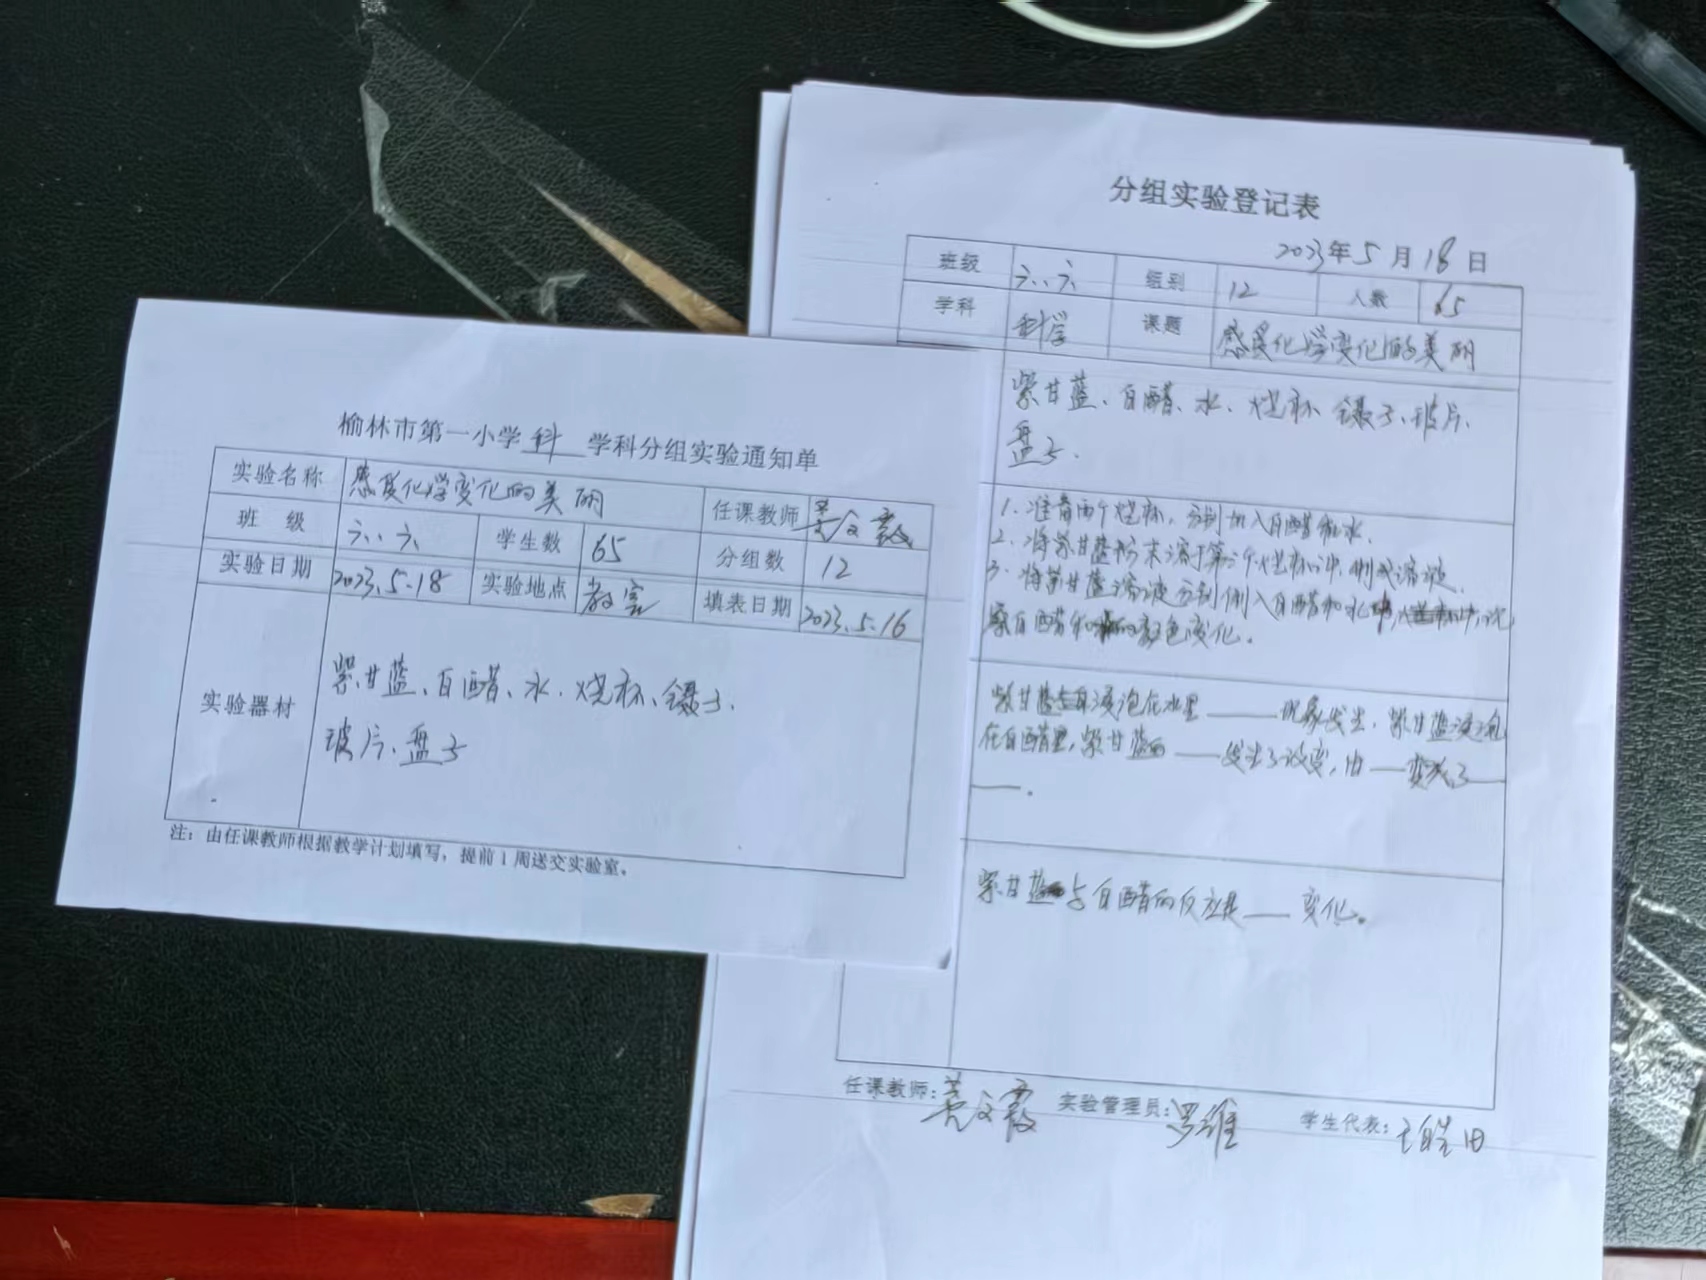 榆林市第一小学 科 学科分组实验通知单
实验名称 感受化学变化的美丽 任课教师 文霞
班 级 六、六 学生数 65 分组数 12
实验日期 2023.5.18 实验地点 教室 填表日期 2023.5.16
实验器材 紫甘蓝、白醋、水、烧杯、镊子、
玻片、盘子
注：由任课教师根据教学计划填写，提前1周送交实验室。
分组实验登记表
2023年5月18日
班级 六、六 组别 12 人数 65
学科 科学 课题 感受化学变化的美丽
紫甘蓝、白醋、水、烧杯、镊子、玻片、
盘子.
1、准备两个烧杯，分别加入白醋和水.
2、将紫甘蓝粉末溶于第三个烧杯中，制成溶液.
3、将紫甘蓝溶液分别倒入白醋和水中，
察白醋和的颜色变化。
紫甘蓝浸泡在水里____现象发生，紫甘蓝浸泡
在白醋里，紫甘蓝的____发生了改变，由___变成了___
___.
紫甘蓝与白醋的反应是___变化。
任课教师： 文霞 实验管理员：罗维 学生代表：王皓田